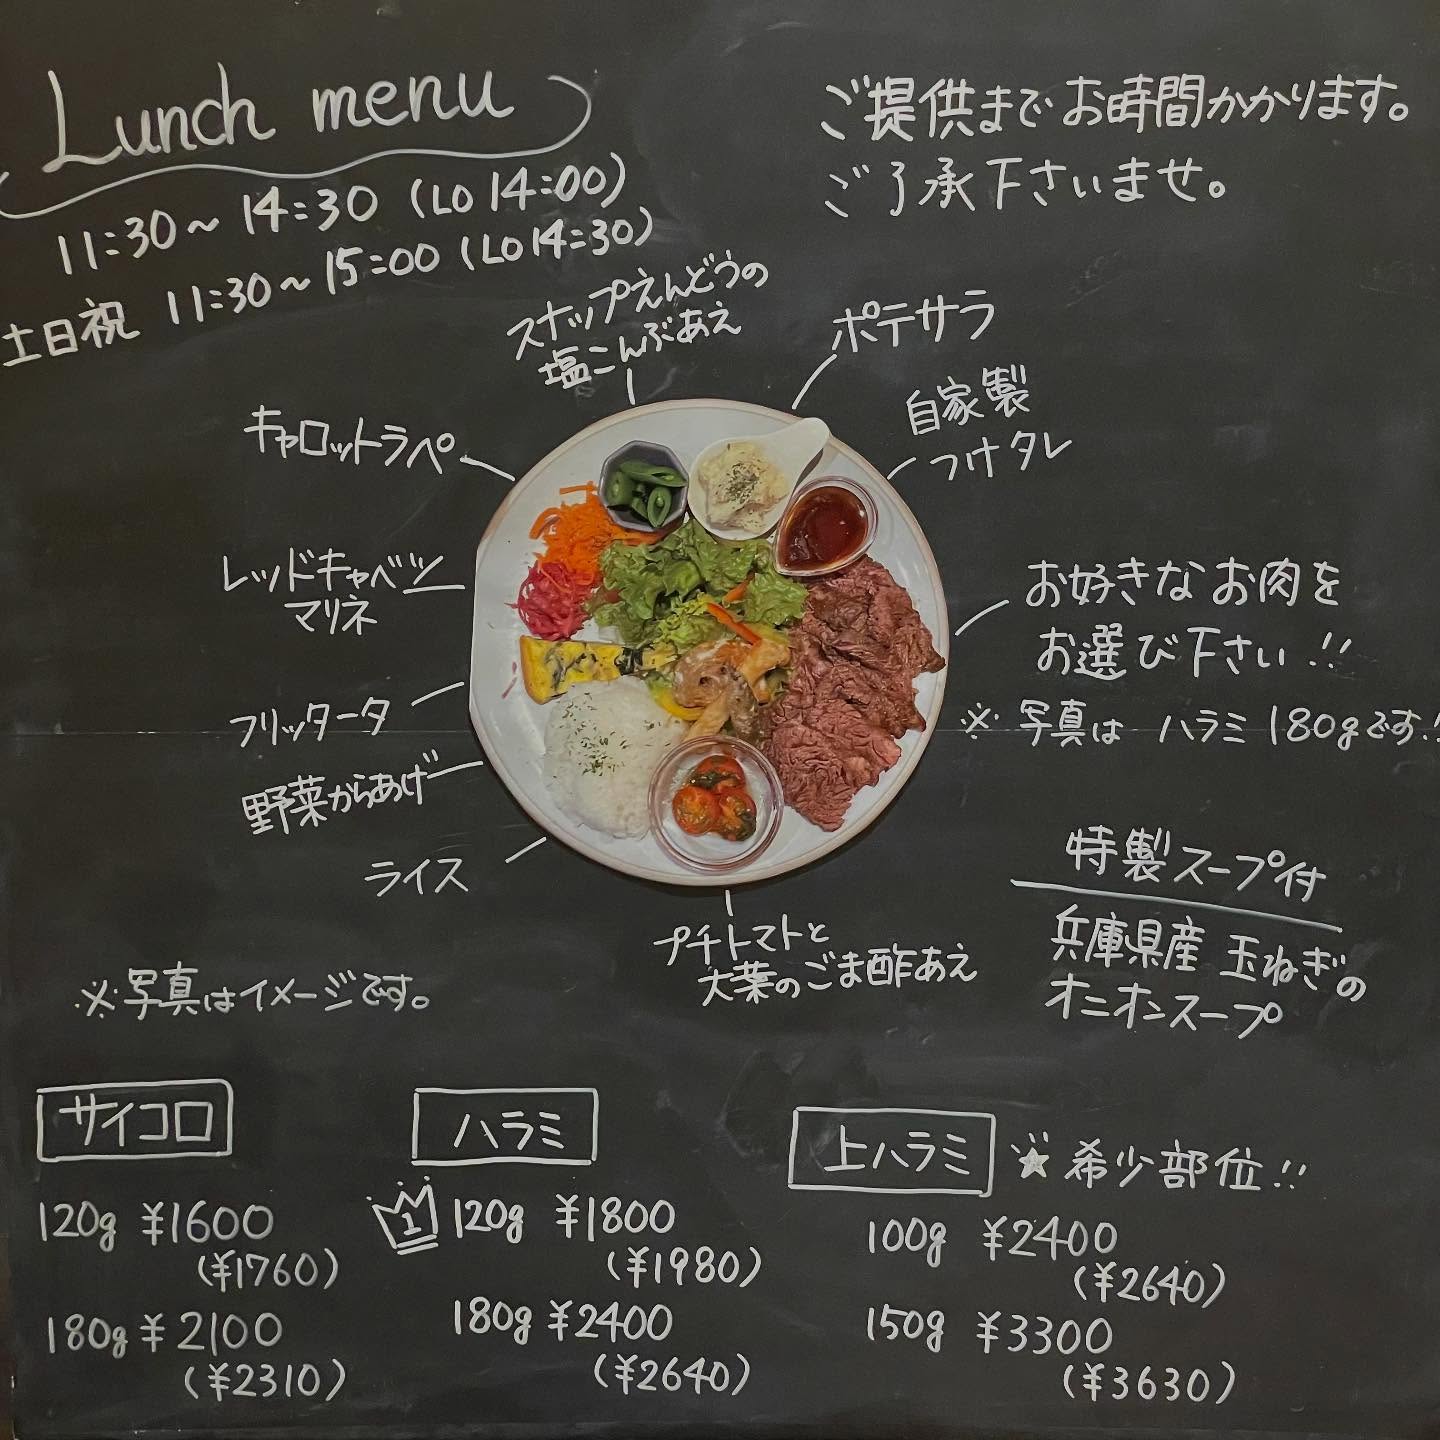 Lunch menu
11:30～14:30 (LO 14:00)
土日祝 11:30～15:00 (LO 14:30)
ご提供までお時間かかります。
ご了承下さいませ。
スナップえんどうの
塩こんぶあえ
ポテサラ
自家製
つけタレ
キャロットラペ
レッドキャベツ
マリネ
お好きなお肉を
お選び下さい!!
※写真は ハラミ180gです!!
フリッタータ
野菜からあげ
ライス
特製スープ付
兵庫県産 玉ねぎの
オニオンスープ
プチトマトと
大葉のごま酢あえ
※写真はイメージです。
サイコロ
120g ¥1600
(¥1760)
180g ¥2100
(¥2310)
ハラミ
1 120g ¥1800
(¥1980)
180g ¥2400
(¥2640)
上ハラミ ★希少部位!!
100g ¥2400
(¥2640)
150g ¥3300
(¥3630)